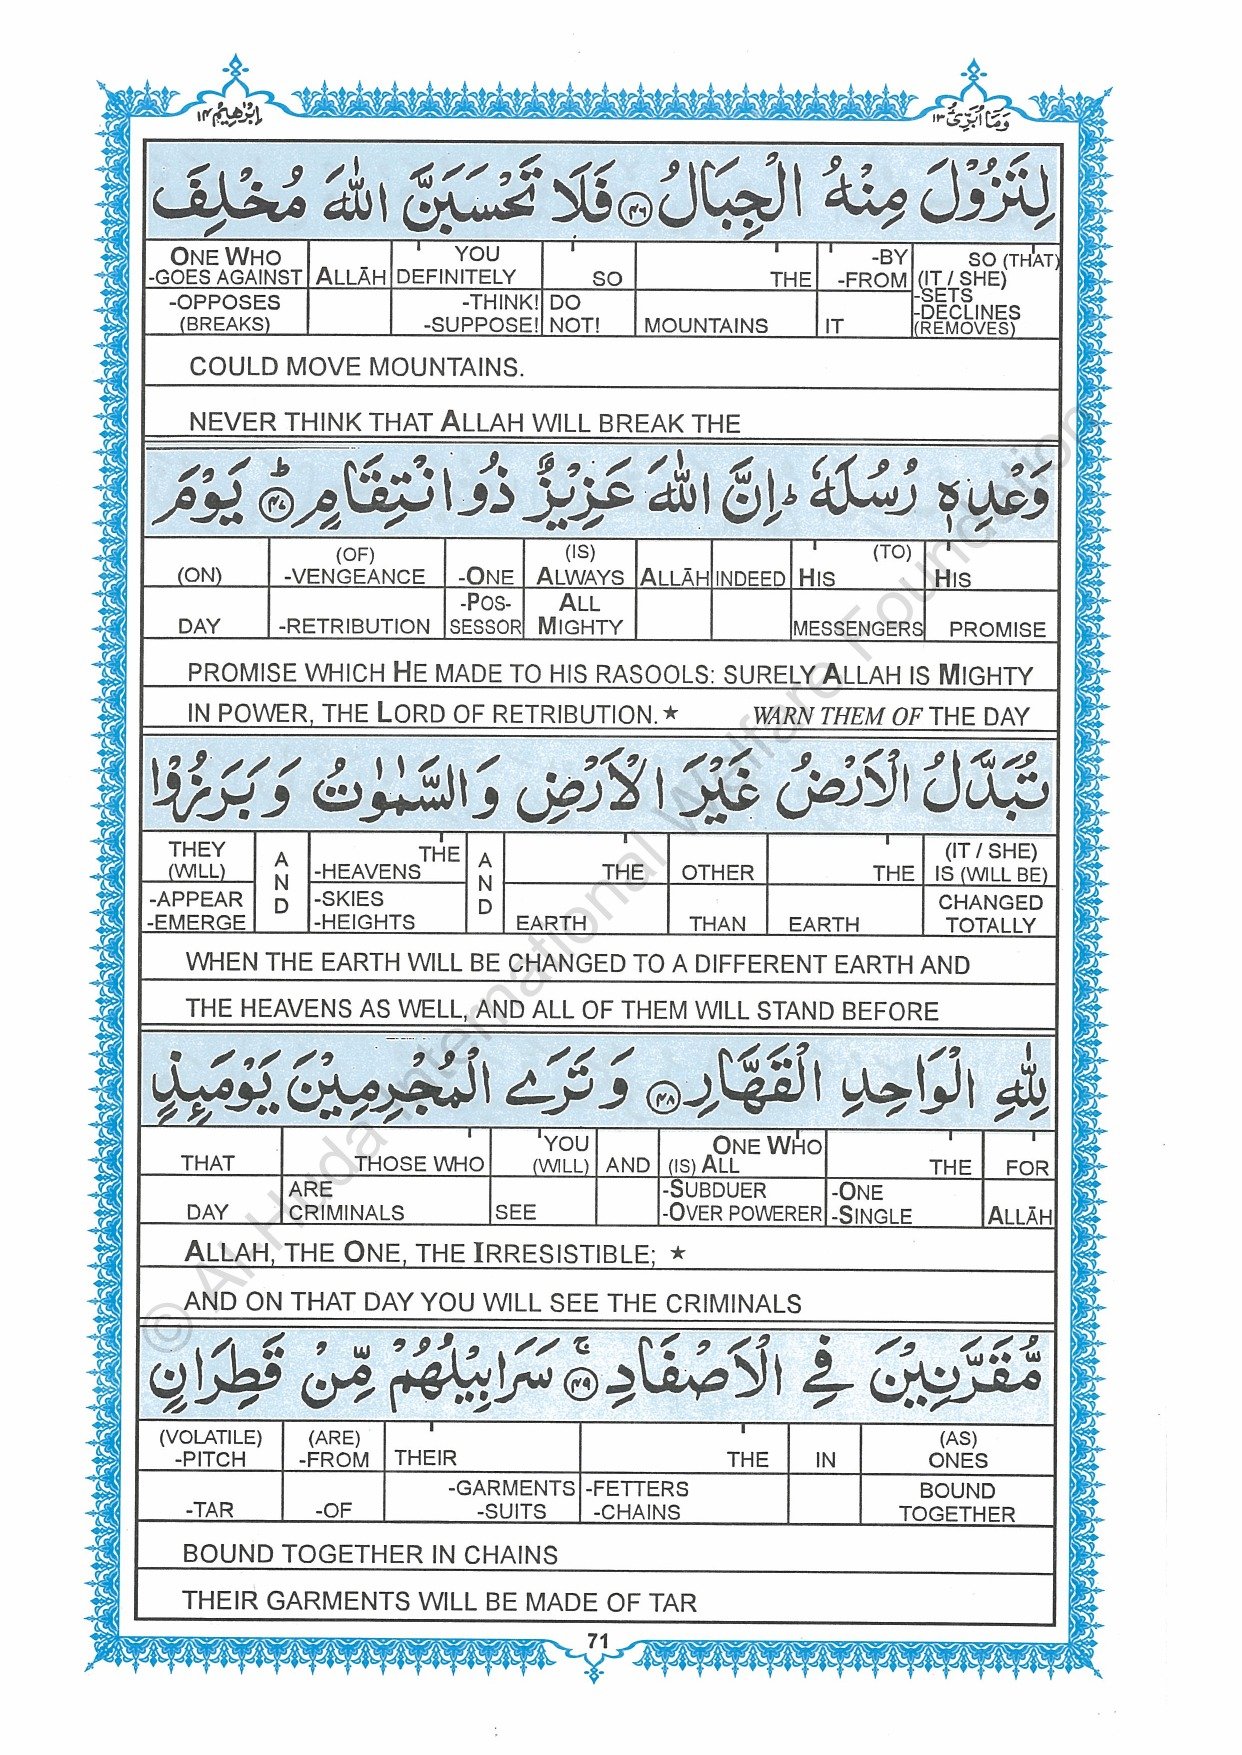 اِبْرٰهِيْم ١٤
وَمَآ اُبَرِّئُ ١٣
لِتَزُوْلَ مِنْهُ الْجِبَالُ ۝٤٦ فَلَا تَحْسَبَنَّ اللّٰهَ مُخْلِفَ
ONE WHO -GOES AGAINST | ALLĀH | YOU DEFINITELY | SO | THE | -BY -FROM | SO (THAT) (IT / SHE)
-OPPOSES (BREAKS) | -THINK! -SUPPOSE! | DO NOT! | MOUNTAINS | IT | -SETS -DECLINES (REMOVES)
COULD MOVE MOUNTAINS.
NEVER THINK THAT ALLAH WILL BREAK THE
وَعْدِهٖ رُسُلَهٗ ؕ اِنَّ اللّٰهَ عَزِيْزٌ ذُو انْتِقَامٍ ؕ۝٤٧ يَوْمَ
(ON) | (OF) -VENGEANCE | -ONE | (IS) ALWAYS | ALLĀH | INDEED | (TO) HIS | HIS
DAY | -RETRIBUTION | -POS- SESSOR | ALL MIGHTY | MESSENGERS | PROMISE
PROMISE WHICH HE MADE TO HIS RASOOLS: SURELY ALLAH IS MIGHTY
IN POWER, THE LORD OF RETRIBUTION.★ WARN THEM OF THE DAY
تُبَدَّلُ الْاَرْضُ غَيْرَ الْاَرْضِ وَالسَّمٰوٰتُ وَبَرَزُوْا
THEY (WILL) | AND | THE -HEAVENS | AND | THE | OTHER | THE | (IT / SHE) IS (WILL BE)
-APPEAR -EMERGE | -SKIES -HEIGHTS | EARTH | THAN | EARTH | CHANGED TOTALLY
WHEN THE EARTH WILL BE CHANGED TO A DIFFERENT EARTH AND
THE HEAVENS AS WELL, AND ALL OF THEM WILL STAND BEFORE
لِلّٰهِ الْوَاحِدِ الْقَهَّارِ ۝٤٨ وَتَرَى الْمُجْرِمِيْنَ يَوْمَئِذٍ
THAT | THOSE WHO | YOU (WILL) | AND | ONE WHO (IS) ALL | THE | FOR
DAY | ARE CRIMINALS | SEE | -SUBDUER -OVER POWERER | -ONE -SINGLE | ALLĀH
ALLAH, THE ONE, THE IRRESISTIBLE; ★
AND ON THAT DAY YOU WILL SEE THE CRIMINALS
مُّقَرَّنِيْنَ فِي الْاَصْفَادِ ۚ۝٤٩ سَرَابِيْلُهُمْ مِّنْ قَطِرَانٍ
(VOLATILE) -PITCH | (ARE) -FROM | THEIR | THE | IN | (AS) ONES
-TAR | -OF | -GARMENTS -SUITS | -FETTERS -CHAINS | BOUND TOGETHER
BOUND TOGETHER IN CHAINS
THEIR GARMENTS WILL BE MADE OF TAR
71
© Al-Huda International Welfare Foundation